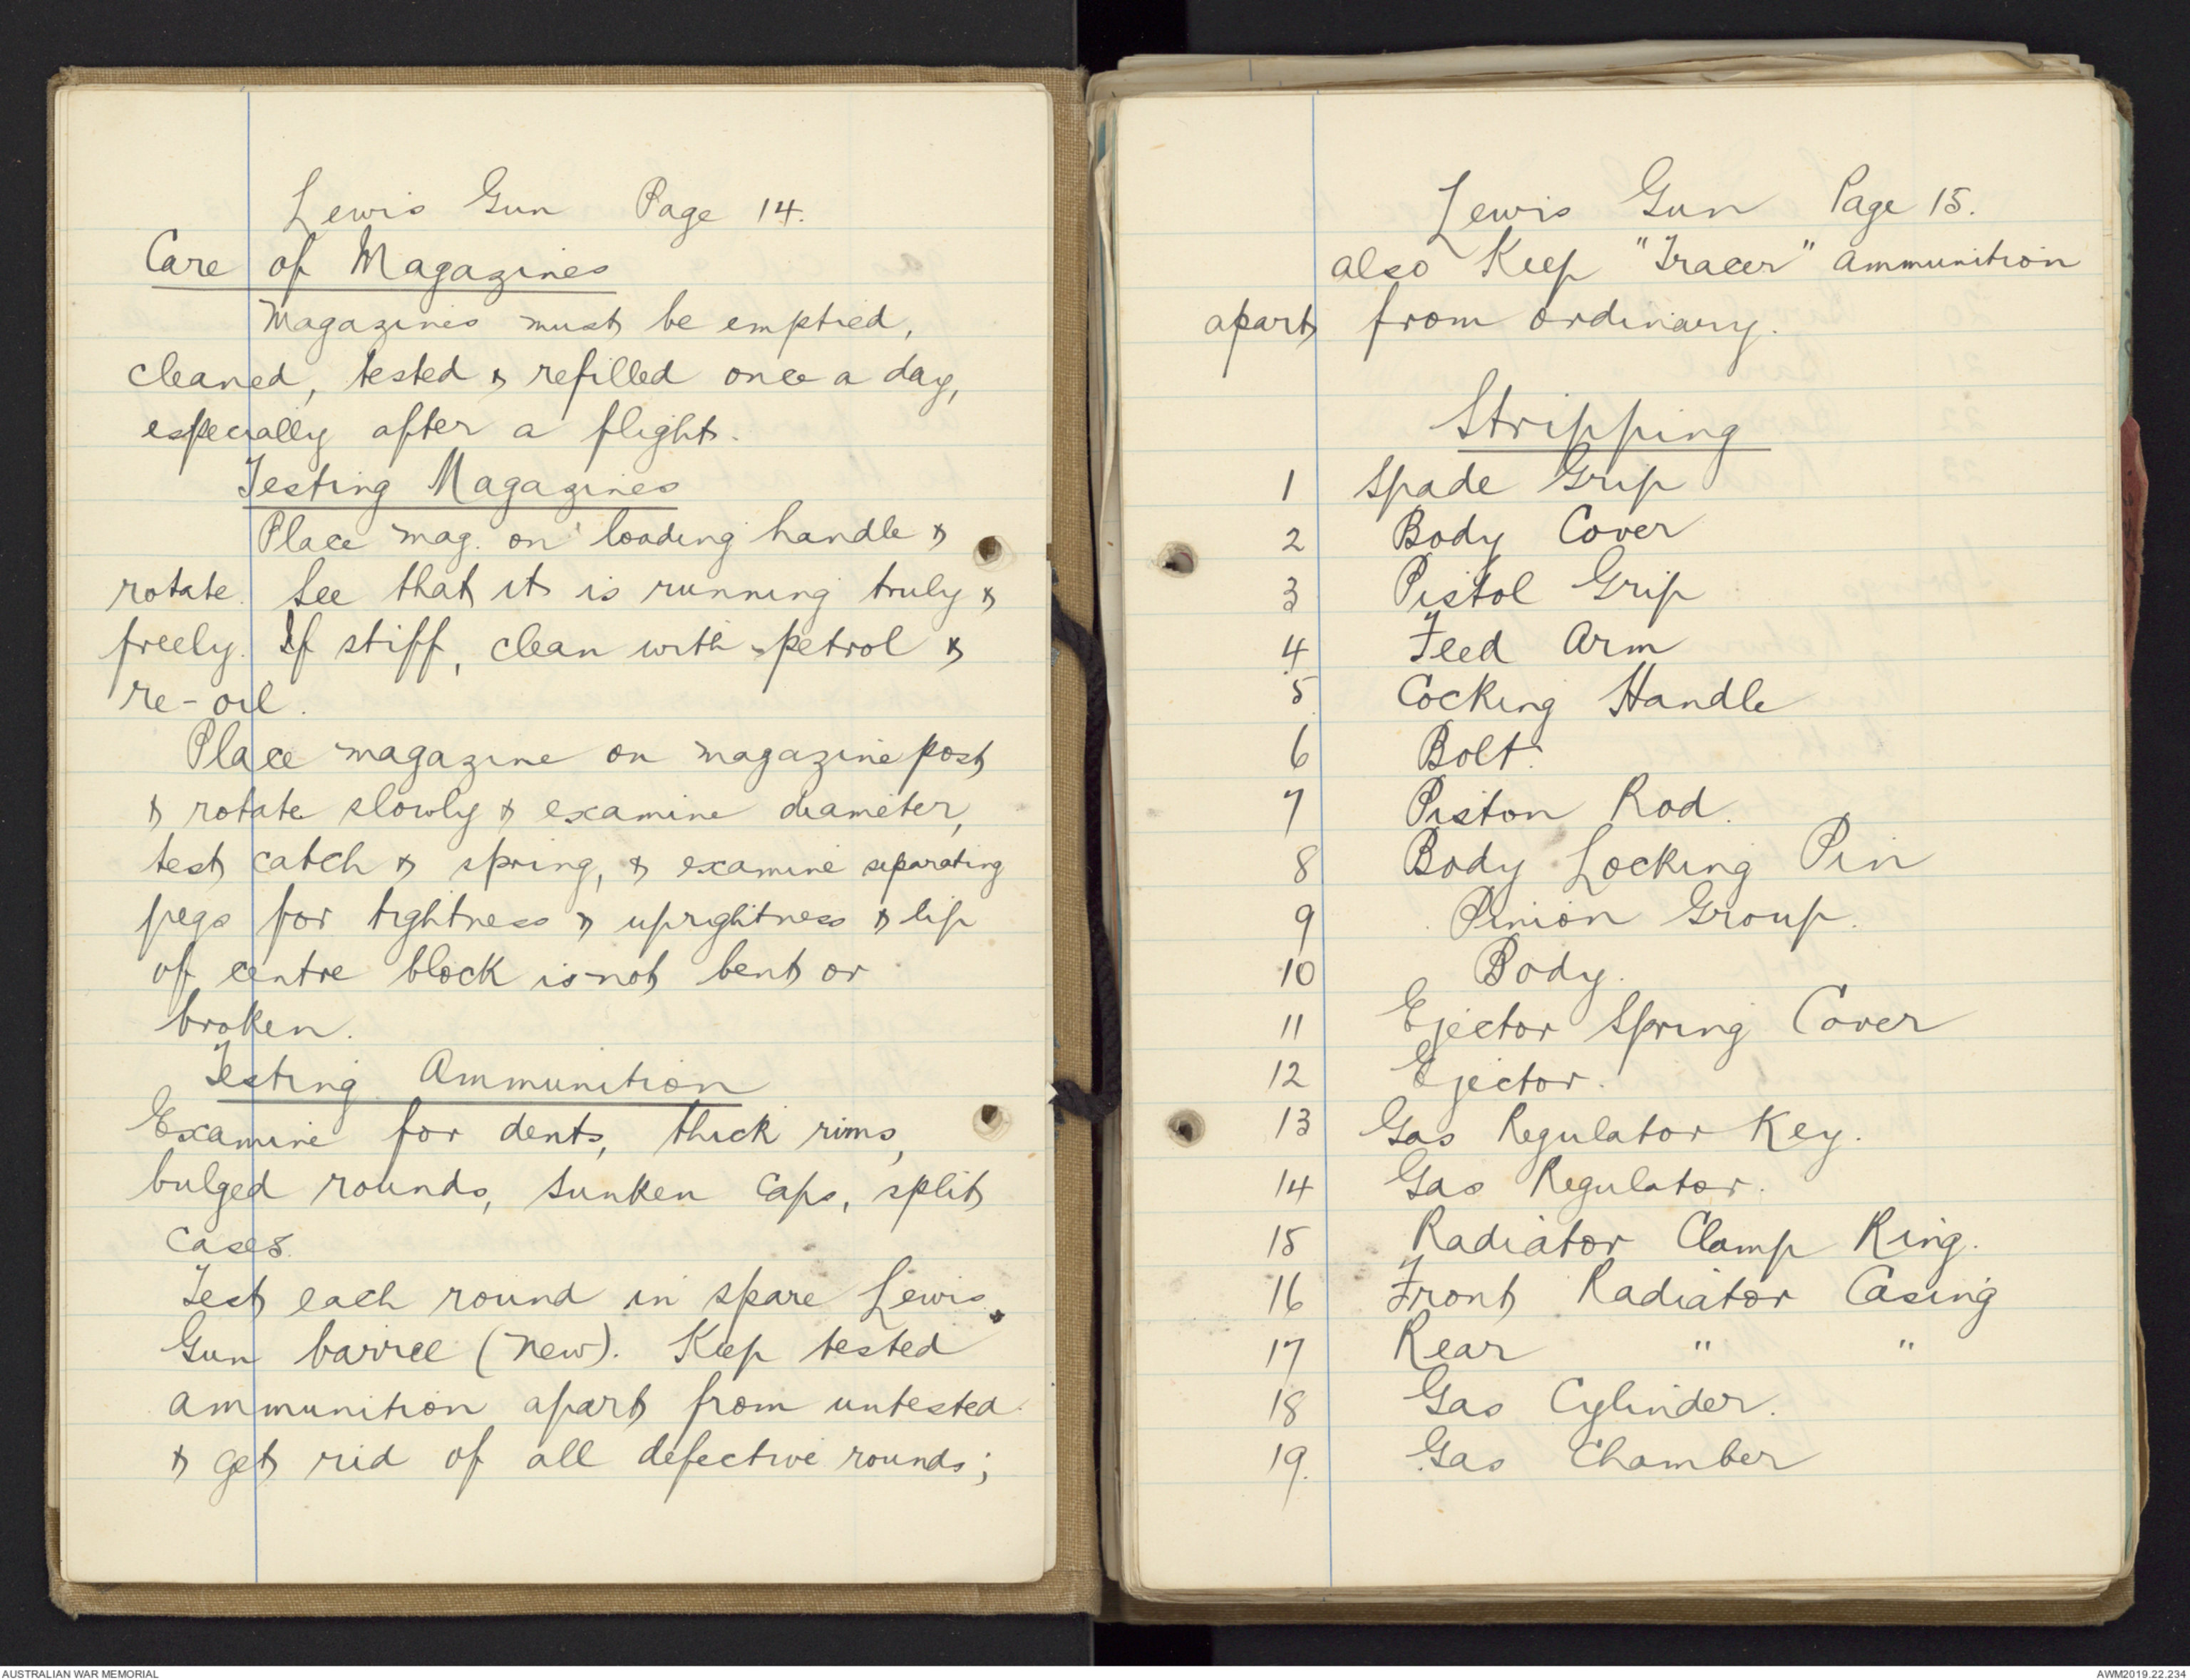 Lewis Gun Page 14.
Care of Magazines
Magazines must be emptied,
cleaned, tested & refilled once a day,
especially after a flight.
Testing Magazines
Place mag. on loading handle &
rotate. See that it is running truly &
freely. If stiff, clean with petrol &
re-oil.
Place magazine on magazine post
& rotate slowly & examine diameter,
test catch & spring, & examine separating
pegs for tightness & uprightness & lip
of centre block is not bent or
broken.
Testing Ammunition
Examine for dents, thick rims,
bulged rounds, sunken caps, split
cases.
Test each round in spare Lewis
Gun barrel (new). Keep tested
ammunition apart from untested
& get rid of all defective rounds;
Lewis Gun Page 15.
also Keep "Tracer" ammunition
apart from ordinary.
Stripping
1 Spade Grip
2 Body Cover
3 Pistol Grip
4 Feed Arm
5 Cocking Handle
6 Bolt.
7 Piston Rod.
8 Body Locking Pin
9 Pinion Group.
10 Body.
11 Ejector Spring Cover
12 Ejector.
13 Gas Regulator Key.
14 Gas Regulator.
15 Radiator Clamp Ring.
16 Front Radiator Casing
17 Rear " "
18 Gas Cylinder.
19. Gas Chamber
AUSTRALIAN WAR MEMORIAL
AWM2019.22.234